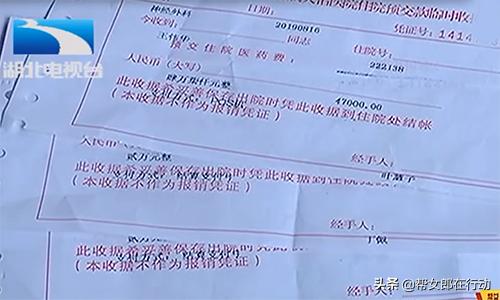 湖北电视台
医院住院预交款临时收据
神经外科
日期:
20190816
凭证号:
1414
今收到:
王伟华
同志
住院号:
预交住院医药费,
222138
人民币(大写)
肆万柒仟元整
47000.00
此收据希妥善保存出院时凭此收据到住院处结帐
(本收据不作为报销凭证)
人民币
贰万元整
经手人:
此收据希妥善保存出院时凭此收据到住院
叶慧子
(本收据不作为报销凭证)
经手人:
贰万元整
丁佩
此收据希妥善保存出院时凭
(本收据不作为报销凭证)
头条 @帮女郎在行动